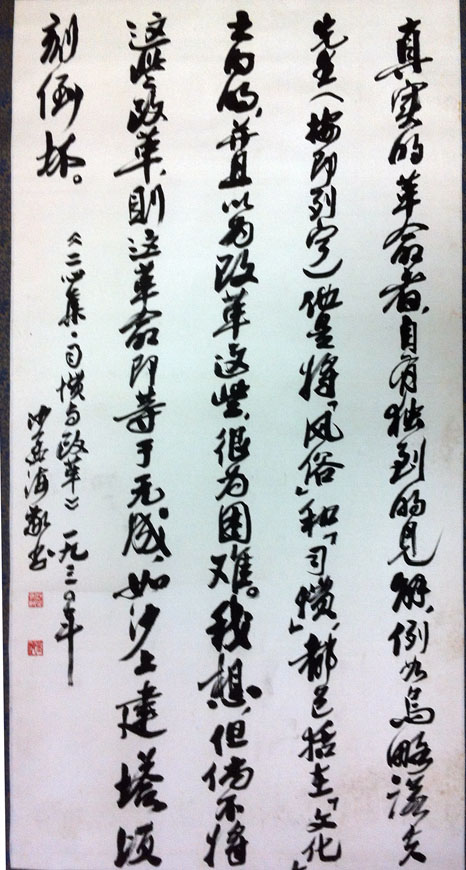 真实的革命者，自有独到的见解，例如乌略诺夫
先生（按即列宁），他是将「风俗」和「习惯」，都包括在「文化」
之内的，并且以为改革这些，很为困难。我想，但倘不将
这些改革，则这革命即等于无成，如沙上建塔，顷
刻倒坏。
《二心集·习惯与改革》一九三〇年
沙孟海敬书